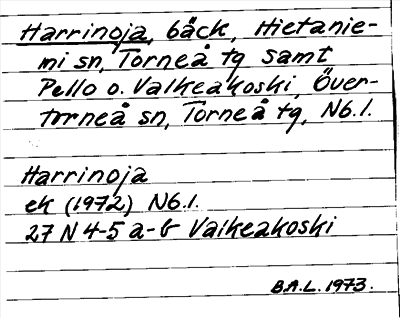 Harrinoja, bäck, Hietanie-
mi sn, Torneå tg samt
Pello o. Valkeakoski, Över-
torneå sn, Torneå tg, Nb.l.
Harrinoja
ek (1972) Nb.l.
27 N 4-5 a-b Valkeakoski
B.A.L. 1973.